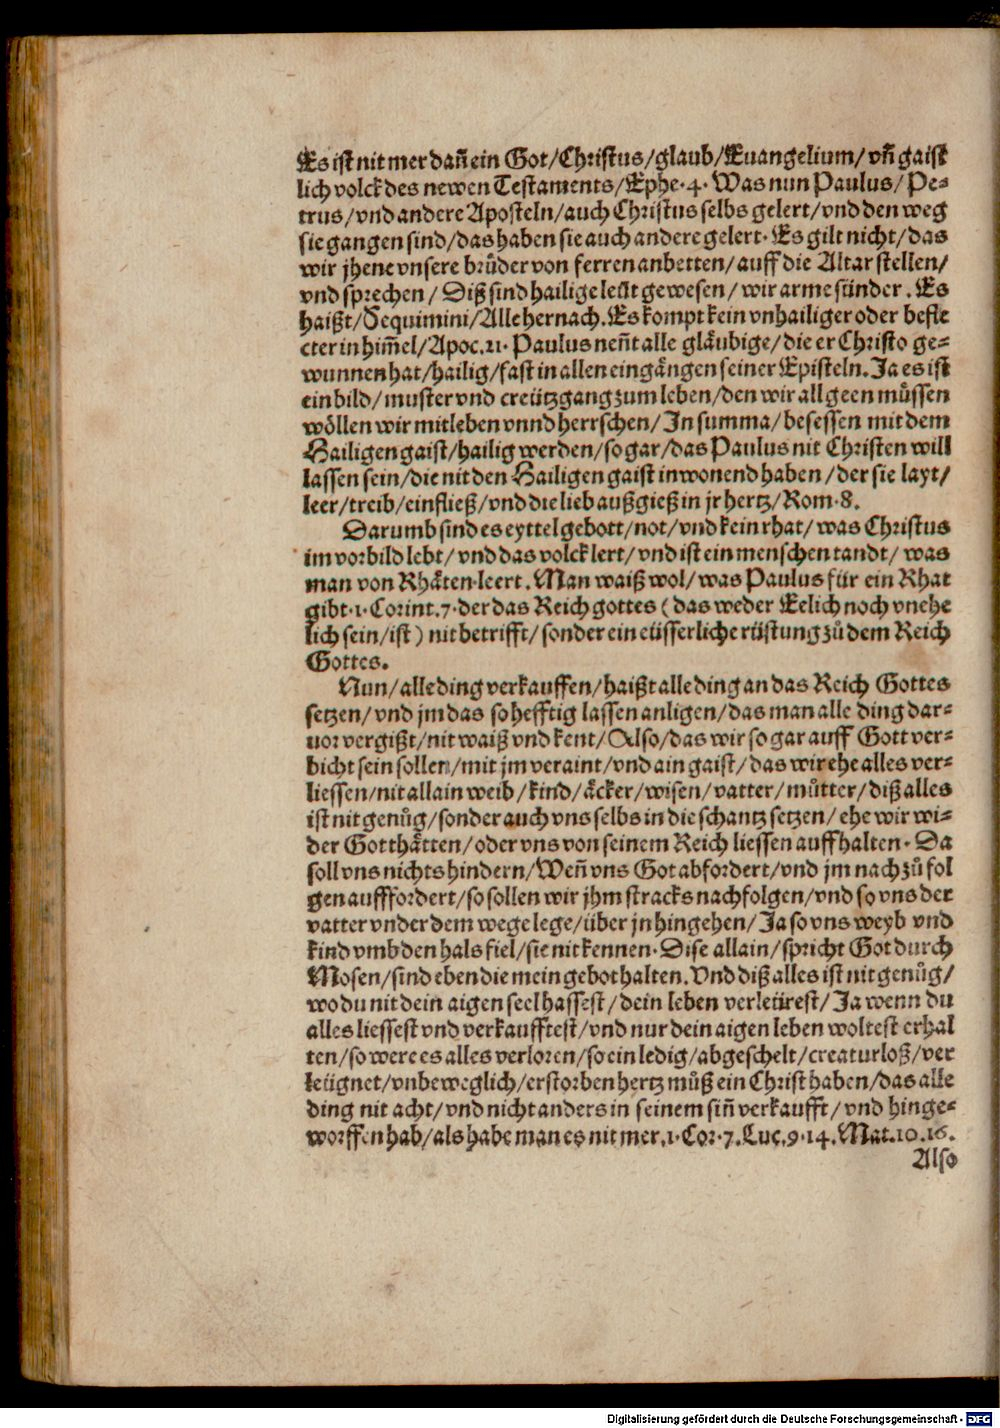 Es ist nit mer dañ ein Got/Christus/glaub/Euangelium/ vñ gaist
lich volck des newen Testaments/Ephe.4. Was nun Paulus/ Pe-
trus/vnd andere Aposteln/auch Christus selbs gelert/vnd den weg
sie gangen sind/das haben sie auch andere gelert. Es gilt nicht/das
wir jhene vnsere brůder von ferren anbetten/auff die Altar stellen/
vnd sprechen/ Diß sind hailige leüt gewesen/ wir arme sünder. Es
haißt/Sequimini/Alle hernach. Es kompt kein vnhailiger oder befle
cter in him̃el/Apoc.21. Paulus neñt alle gläubige/die er Christo ge-
wunnen hat/hailig/fast in allen eingängen seiner Episteln. Ja es ist
ein bild/muster vnd creützgang zum leben/den wir all geen müssen
wöllen wir mitleben vnnd herrschen/ In summa/besessen mit dem
Hailigen gaist/hailig werden/so gar/das Paulus nit Christen will
lassen sein/die nit den Hailigen gaist inwonend haben/der sie layt/
leer/treib/einfließ/vnd die lieb außgieß in jr hertz/Rom.8.
Darumb sind es eyttel gebott/not/vnd kein rhat/was Christus
im vorbild lebt/vnd das volck lert/vnd ist ein menschen tandt/ was
man von Rhäten leert. Man waiß wol/was Paulus für ein Rhat
gibt.1.Corint.7.der das Reich gottes (das weder Eelich noch vnehe
lich sein/ist) nit betrifft/sonder ein eüsserliche rüstung zů dem Reich
Gottes.
Nun/alle ding verkauffen/haißt alle ding an das Reich Gottes
setzen/vnd jm das so hefftig lassen anligen/das man alle ding dar-
uor vergißt/nit waiß vnd kent/Also/das wir so gar auff Gott ver-
bicht sein sollen/mit jm veraint/vnd ain gaist/das wir ehe alles ver-
liessen/nit allain weib/kind/äcker/wisen/vatter/můtter/diß alles
ist nit genůg/sonder auch vns selbs in die schantz setzen/ehe wir wi-
der Gott hätten/oder vns von seinem Reich liessen auffhalten. Da
soll vns nichts hindern/Weñ vns Got abfordert/vnd jm nach zů fol
gen aufffordert/so sollen wir jhm stracks nachfolgen/vnd so vns der
vatter vnder dem wege lege/über jn hingehen/Ja so vns weyb vnd
kind vmb den hals fiel/sie nit kennen. Dise allain/spricht Got durch
Mosen/sind eben die mein gebot halten. Vnd diß alles ist nit genůg/
wo du nit dein aigen seel hassest/dein leben verleürest/Ja wenn du
alles liessest vnd verkaufftest/vnd nur dein aigen leben woltest erhal
ten/so were es alles verloren/so ein ledig/abgeschelt/creaturloß/ver
leügnet/vnbeweglich/erstorben hertz můß ein Christ haben/das alle
ding nit acht/vnd nicht anders in seinem siñ verkaufft/vnd hinge-
worffen hab/als habe man es nit mer.1.Cor.7.Luc.9.14.Mat.10.16.
Also
Digitalisierung gefördert durch die Deutsche Forschungsgemeinschaft - DFG